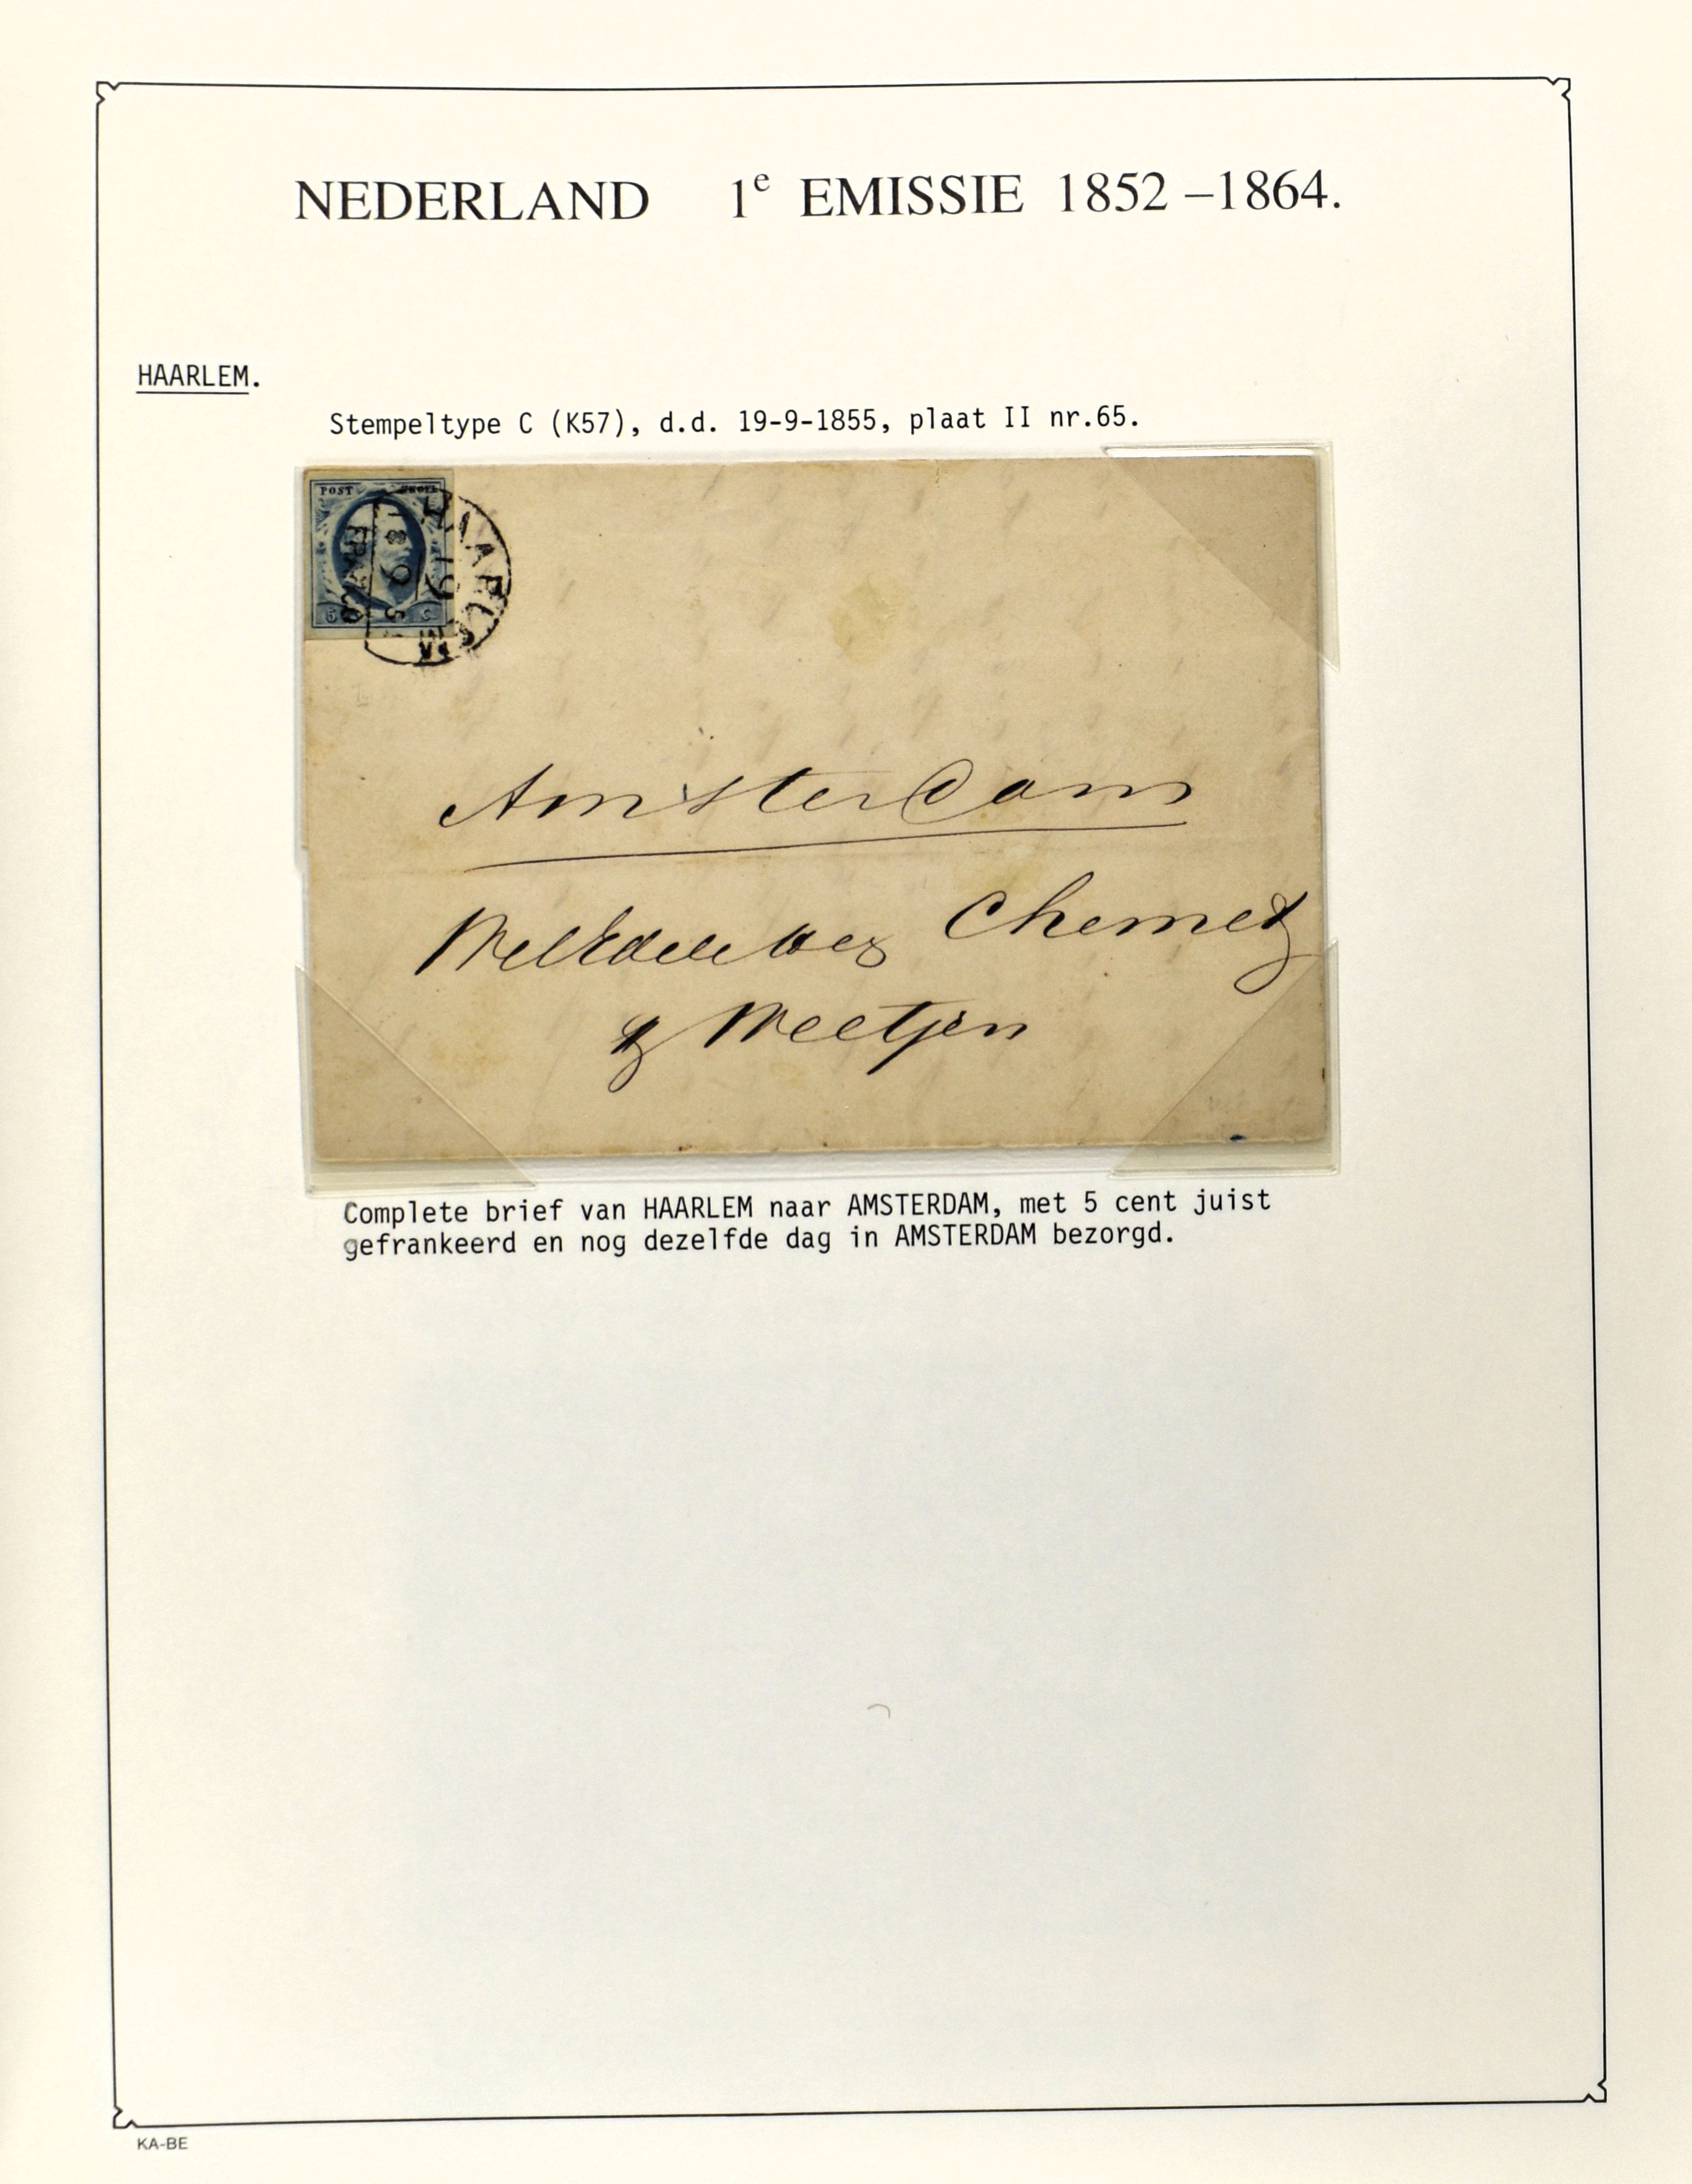 NEDERLAND 1e EMISSIE 1852 –1864.
HAARLEM.
Stempeltype C (K57), d.d. 19-9-1855, plaat II nr.65.
POST
5 C
HAARLEM
19
9
FRANCO
Amsterdam
Chemet
& Weetjen
Complete brief van HAARLEM naar AMSTERDAM, met 5 cent juist
gefrankeerd en nog dezelfde dag in AMSTERDAM bezorgd.
KA-BE